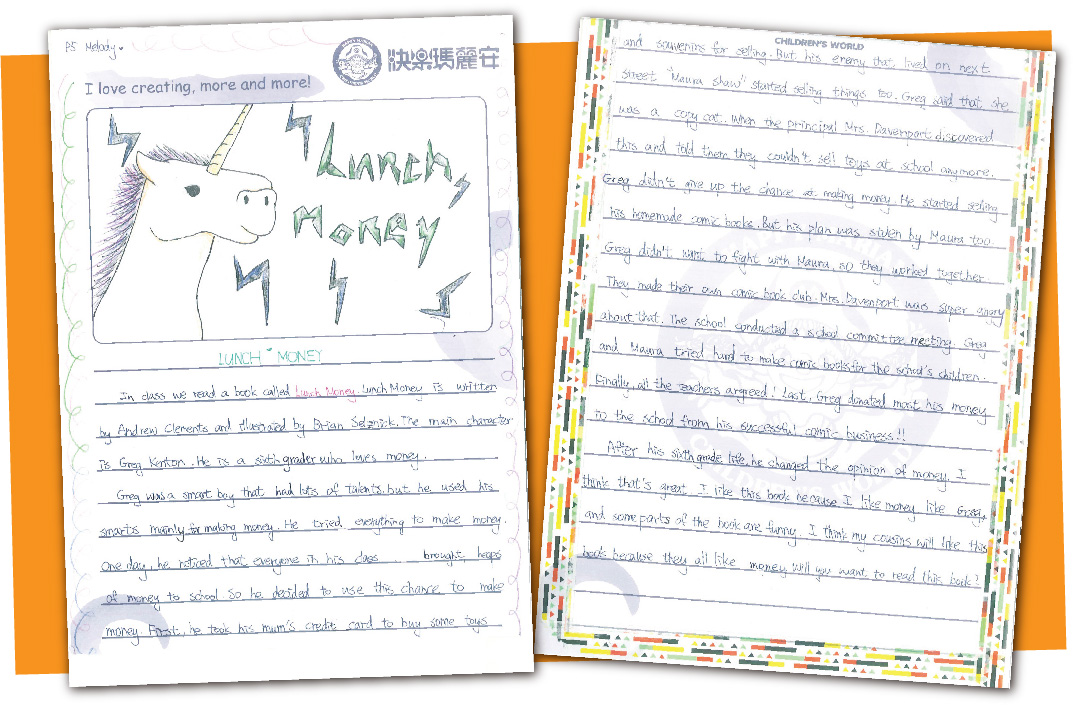 P5 Melody.
快樂瑪麗安
I love creating, more and more!
Lunch
Money
LUNCH MONEY
In class we read a book called Lunch Money. Lunch Money is written
by Andrew Clements and illustrated by Brian Selznick. The main character
is Greg Kenton. He is a sixth grader who loves money.
Greg was a smart boy that had lots of talents. but he used his
smarts mainly for making money. He tried everything to make money.
One day, he noticed that everyone in his class brought heaps
of money to school. So he decided to use this chance to make
money. First, he took his mum's credit card to buy some toys
CHILDREN'S WORLD
and souvenirs for selling. But his enemy that lived on next
street "Maura shaw" started selling things too. Greg said that she
was a copy cat. When the principal Mrs. Davenport discovered
this and told them they couldn't sell toys at school anymore.
Greg didn't give up the chance at making money. He started selling
his homemade comic books. But his plan was stolen by Maura too.
Greg didn't want to fight with Maura, so they worked together.
They made their own comic book club. Mrs. Davenport was super angry
about that. The school conducted a school committee meeting. Greg
and Maura tried hard to make comic books for the school's children.
Finally, all the teachers argreed! Last, Greg donated most his money
to the school from his successful comic business!!
After his sixth grade life, he changed the opinion of money. I
think that's great. I like this book because I like money like Greg,
and some parts of the book are funny. I think my cousins will like this
book because they all like money. will you want to read this book?